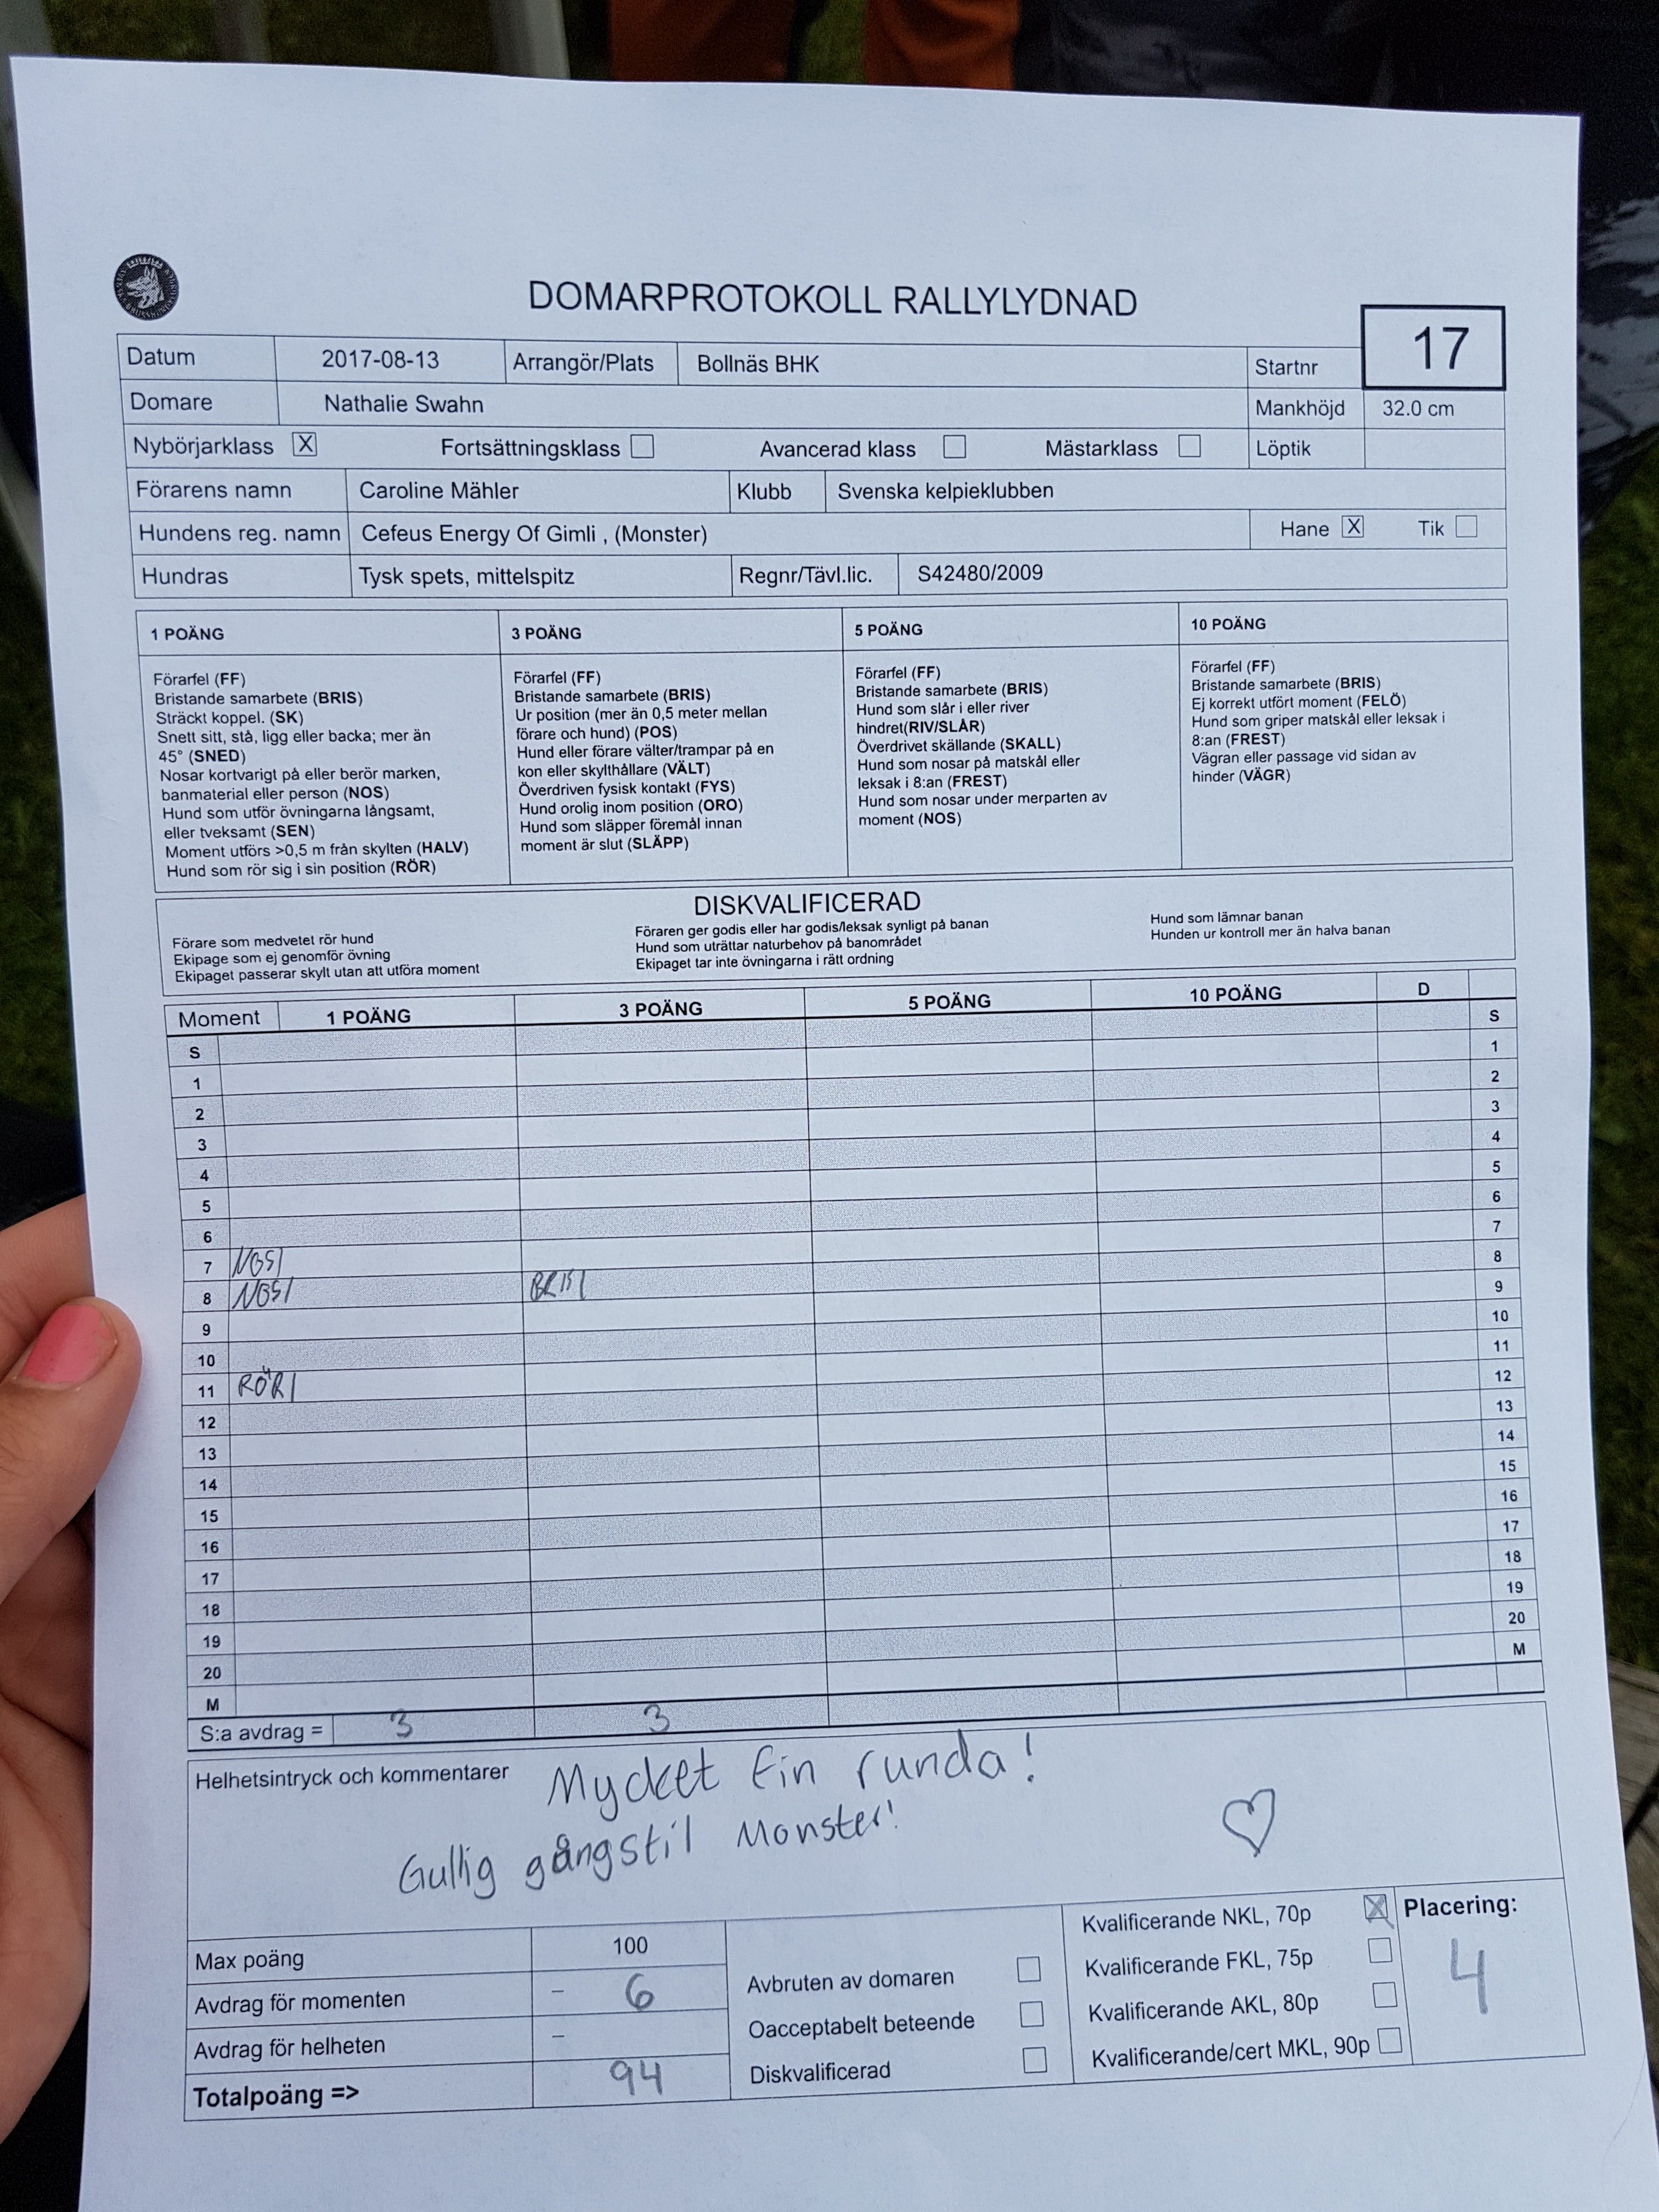 DOMARPROTOKOLL RALLYLYDNAD
17
Datum 2017-08-13 Arrangör/Plats Bollnäs BHK Startnr
Domare Nathalie Swahn Mankhöjd 32.0 cm
Nybörjarklass X Fortsättningsklass Avancerad klass Mästarklass Löptik
Förarens namn Caroline Mähler Klubb Svenska kelpieklubben
Hundens reg. namn Cefeus Energy Of Gimli , (Monster) Hane X Tik
Hundras Tysk spets, mittelspitz Regnr/Tävl.lic. S42480/2009
1 POÄNG
Förarfel (FF)
Bristande samarbete (BRIS)
Sträckt koppel. (SK)
Snett sitt, stå, ligg eller backa; mer än
45° (SNED)
Nosar kortvarigt på eller berör marken,
banmaterial eller person (NOS)
Hund som utför övningarna långsamt,
eller tveksamt (SEN)
Moment utförs >0,5 m från skylten (HALV)
Hund som rör sig i sin position (RÖR)
3 POÄNG
Förarfel (FF)
Bristande samarbete (BRIS)
Ur position (mer än 0,5 meter mellan
förare och hund) (POS)
Hund eller förare välter/trampar på en
kon eller skylthållare (VÄLT)
Överdriven fysisk kontakt (FYS)
Hund orolig inom position (ORO)
Hund som släpper föremål innan
moment är slut (SLÄPP)
5 POÄNG
Förarfel (FF)
Bristande samarbete (BRIS)
Hund som slår i eller river
hindret(RIV/SLÅR)
Överdrivet skällande (SKALL)
Hund som nosar på matskål eller
leksak i 8:an (FREST)
Hund som nosar under merparten av
moment (NOS)
10 POÄNG
Förarfel (FF)
Bristande samarbete (BRIS)
Ej korrekt utfört moment (FELÖ)
Hund som griper matskål eller leksak i
8:an (FREST)
Vägran eller passage vid sidan av
hinder (VÄGR)
DISKVALIFICERAD
Förare som medvetet rör hund
Ekipage som ej genomför övning
Ekipaget passerar skylt utan att utföra moment
Föraren ger godis eller har godis/leksak synligt på banan
Hund som uträttar naturbehov på banområdet
Ekipaget tar inte övningarna i rätt ordning
Hund som lämnar banan
Hunden ur kontroll mer än halva banan
Moment 1 POÄNG 3 POÄNG 5 POÄNG 10 POÄNG D
S S
1 1
2 2
3 3
4 4
5 5
6 6
7 NOS/ 7
8 NOS/ BRIS/ 8
9 9
10 10
11 RÖR/ 11
12 12
13 13
14 14
15 15
16 16
17 17
18 18
19 19
20 20
M M
S:a avdrag = 3 3
Helhetsintryck och kommentarer Mycket fin runda!
Gullig gångstil Monster!
Max poäng 100
Avdrag för momenten – 6
Avdrag för helheten –
Totalpoäng => 94
Avbruten av domaren
Oacceptabelt beteende
Diskvalificerad
Kvalificerande NKL, 70p X
Kvalificerande FKL, 75p
Kvalificerande AKL, 80p
Kvalificerande/cert MKL, 90p
Placering:
4